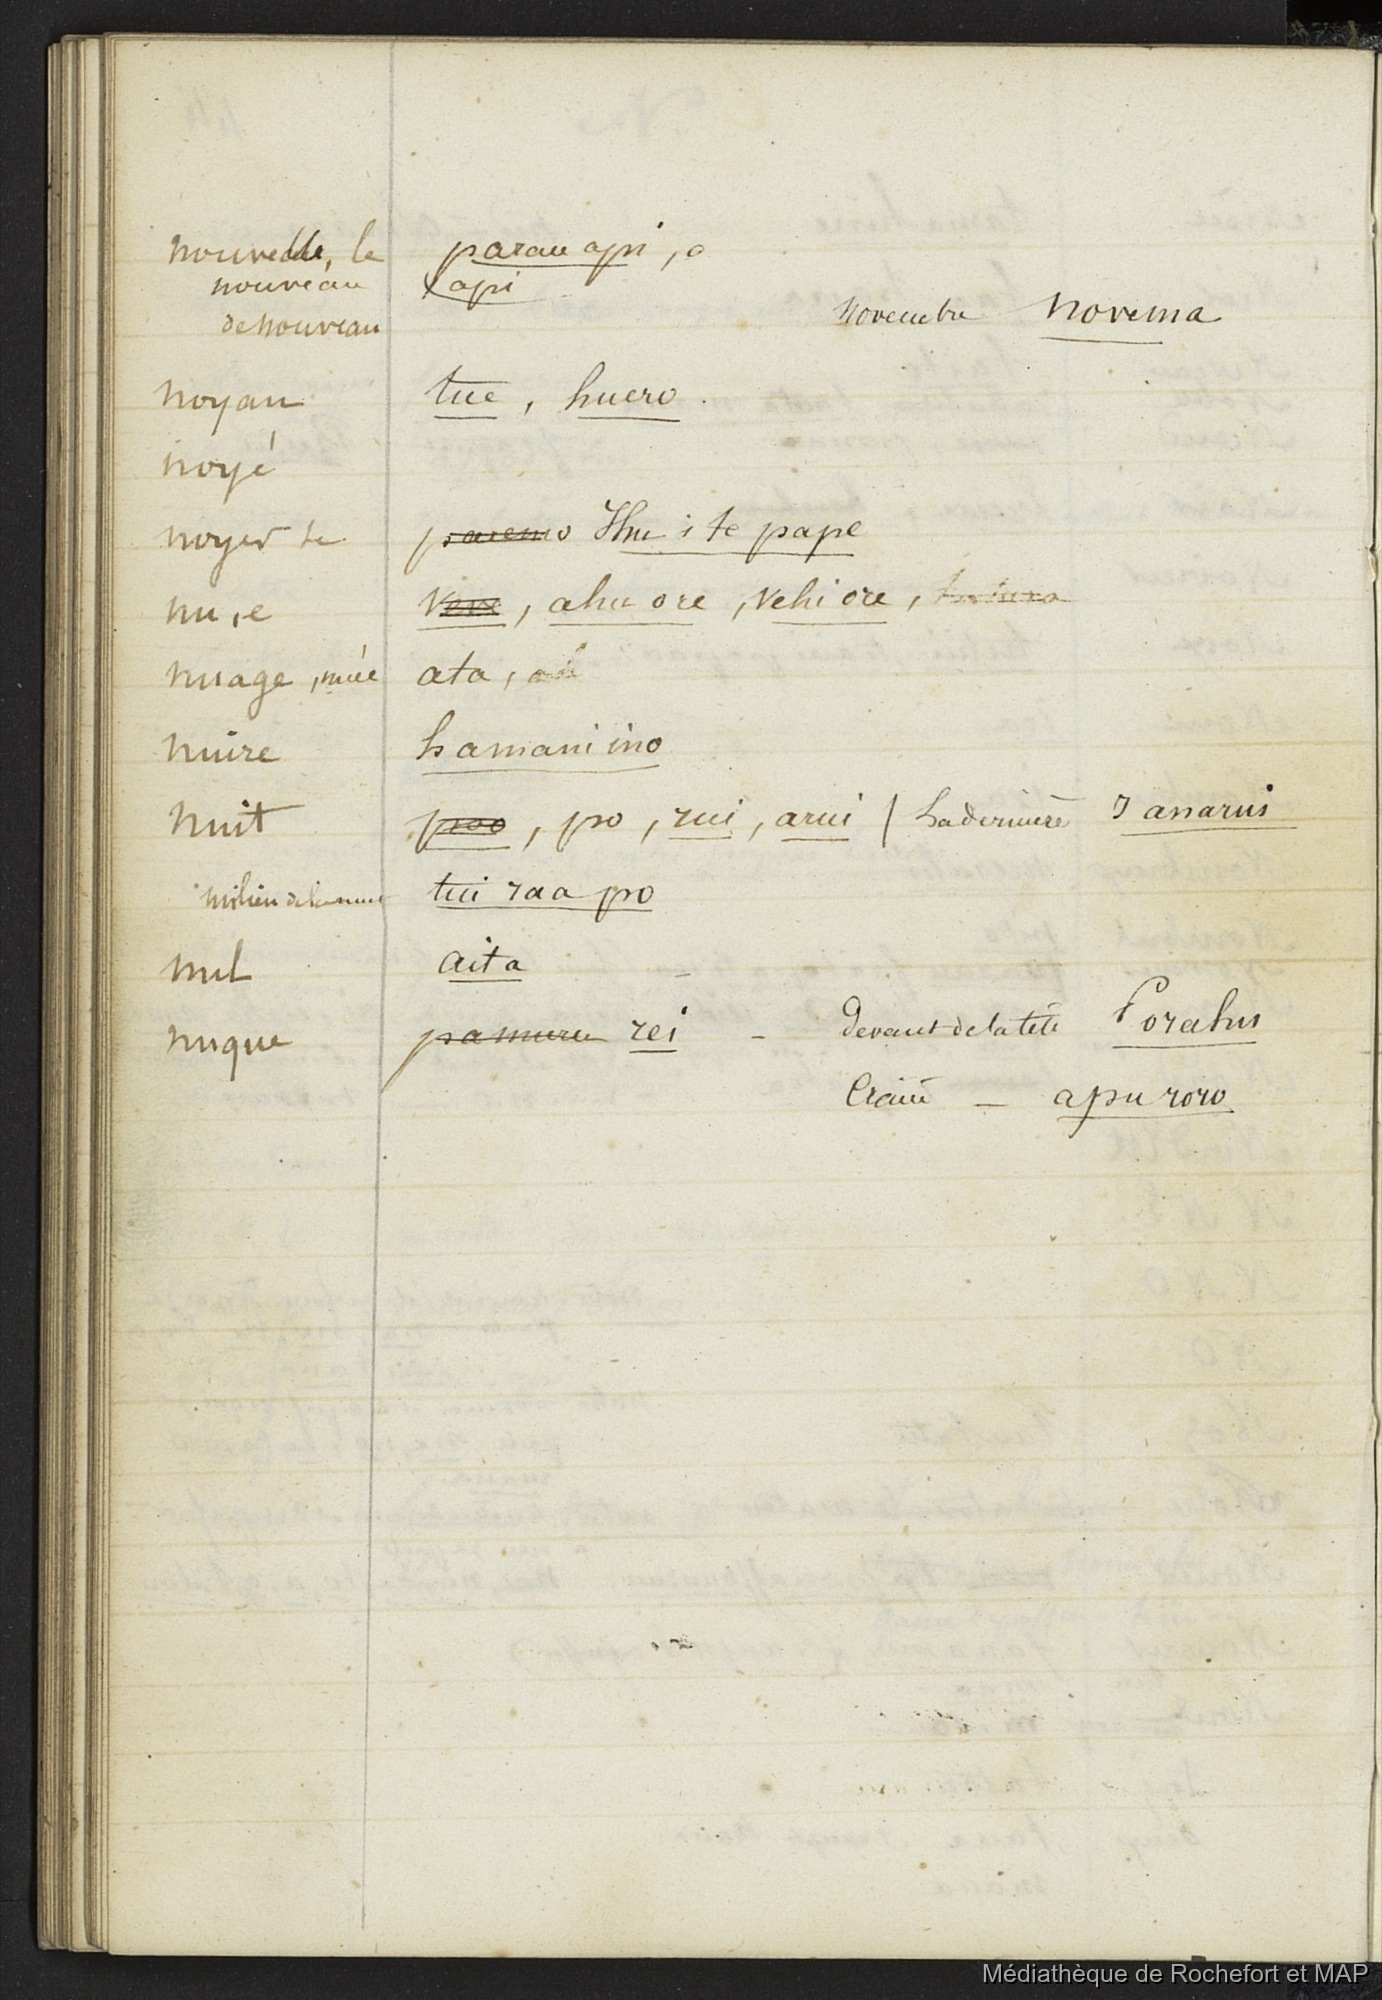 nouvelle, le parau api, o
nouveau api
de nouveau novembre novema
noyau tue, huero.
noyé
noyer se paremo Ihu i te pape
nu, e veve, ahu ore, vehi ore,
nuage, nuée ata,
nuire hamani ino
nuit poo, po, rui, arui / La dernière J anarui
milieu de la nuit tui raa po
nul aita -
nuque pamuru rei - devant de la tête Porahu
Crâne - apu roro
Médiathèque de Rochefort et MAP